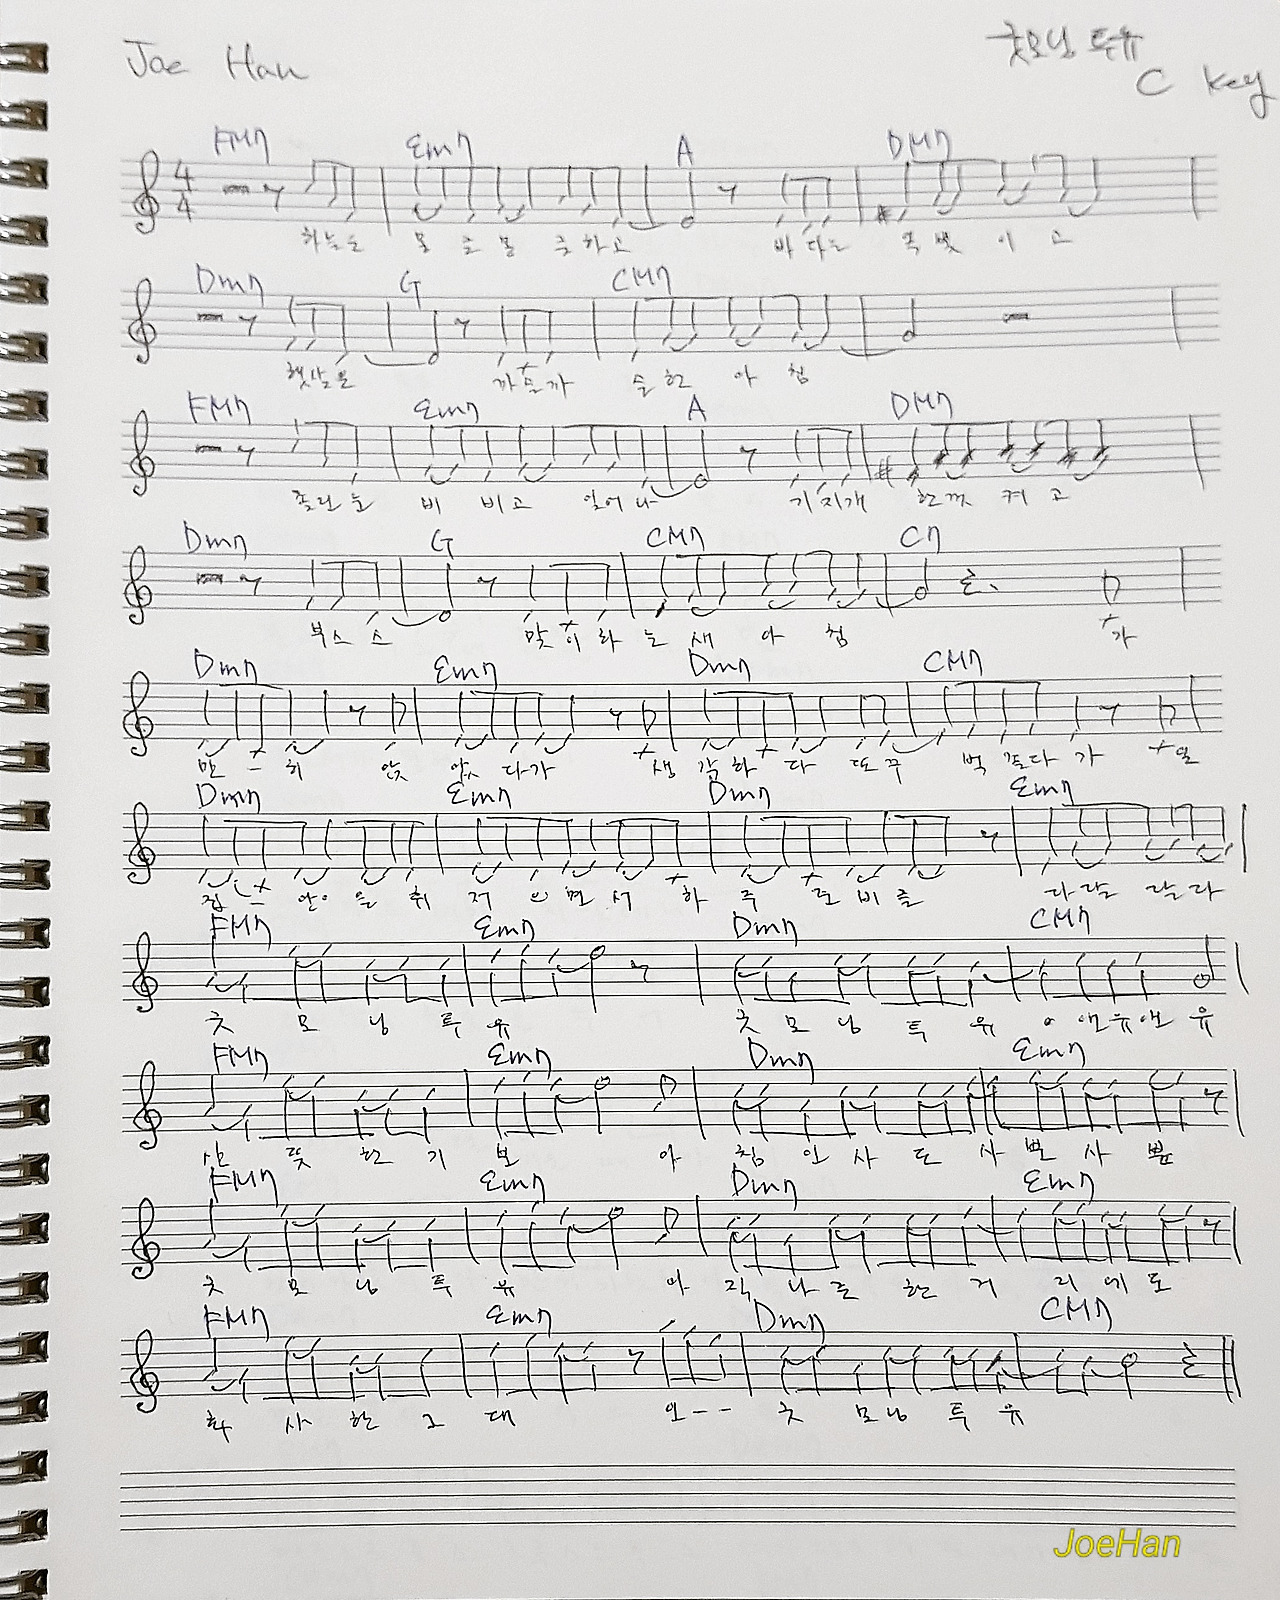 Joe Han
굿모닝 투유
C Key
FM7 Em7 A DM7
4 4
하늘은 뭉 클하고 바다는 이 고
Dm7 G CM7
햇살은 까 슬까 슬한 아 침
FM7 Em7 A DM7
졸린 눈 비 비고 일어나 기지개 한껏 켜 고
Dm7 G CM7 C7
부스 스 맞이하 는 새 아 침 가
Dm7 Em7 Dm7 CM7
만 히 앉 았 다가 생 각하 다 또 꾸 벅 졸다 가 일
Dm7 Em7 Dm7 Em7
집 안 을 휘 저 으 면 서 하 루 를 비 틀 라 랄 랄 라
FM7 Em7 Dm7 CM7
굿 모 닝 투 유 굿 모 닝 투 유 앤 유 앤 유
FM7 Em7 Dm7 Em7
산 뜻 한 기 분 아 침 인 사 도 사 뿐 사 뿐
FM7 Em7 Dm7 Em7
굿 모 닝 투 유 아 직 나 른 한 거 리 에 도
FM7 Em7 Dm7 CM7
화 사 한 그 대 오 -- 굿 모닝 투 유
JoeHan